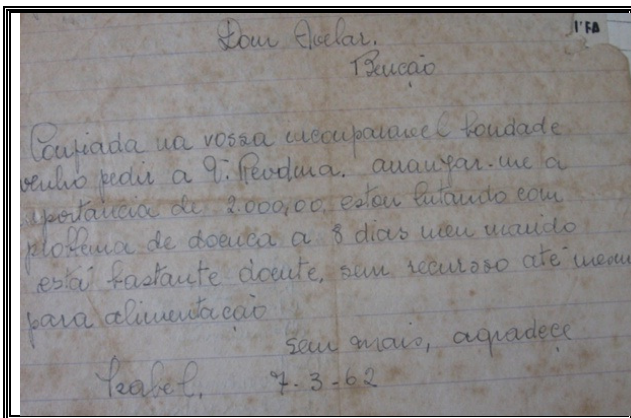 Dom Avelar.
Benção
Confiada na vossa incomparavel bondade
venho pedir a V. Revdma. arranjar-me a
importancia de 2.000,00, estou lutando com
ploblema de doenca a 8 dias meu marido
está bastante doente, sem recursso até mesmo
para alimentação
sem mais, agradece
Izabel. 7-3-62